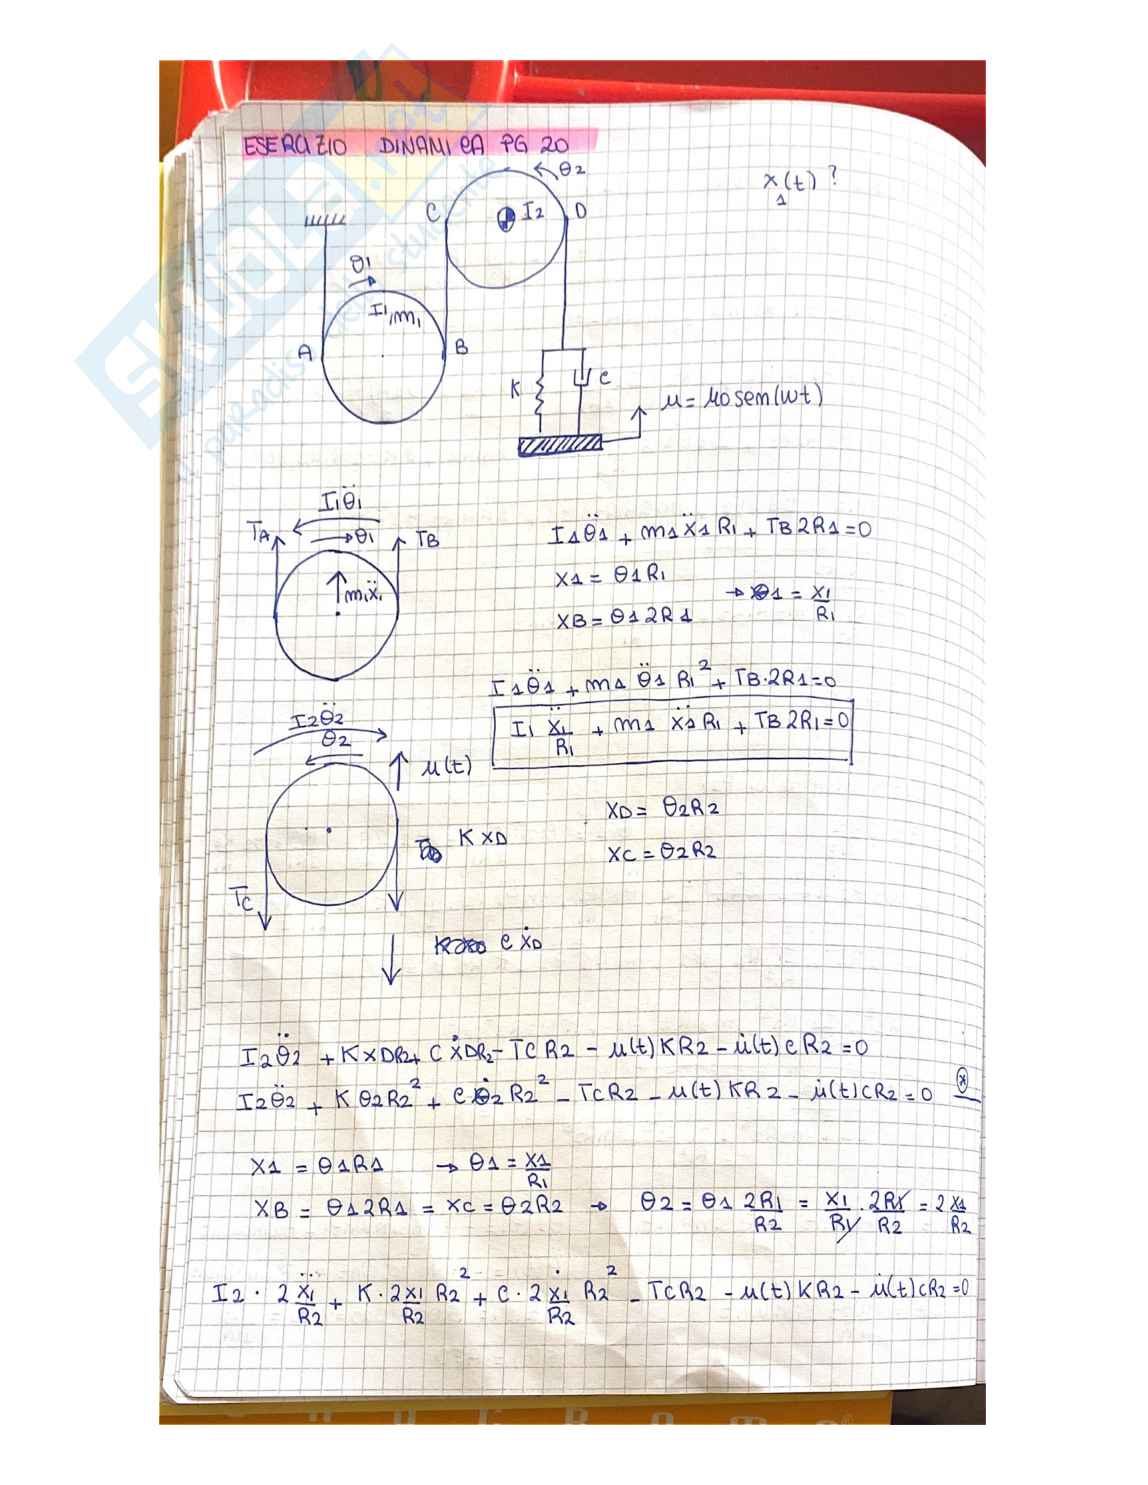 ESERCIZIO DINAMICA PG 20
x₁(t) ?
θ2
C
I2
D
θ1
I1,m1
A
B
K
c
u = u0 sen(wt)
I₁θ̈₁
TA
θ1
TB
m₁ẍ₁
I1θ̈1 + m1ẍ1R1 + TB2R1=0
x1 = θ1R1
→ θ1 = x1/R1
xB = θ1 2R1
I1θ̈1 + m1 θ̈1 R1² + TB·2R1=0
I1 ẍ1/R1 + m1 ẍ1R1 + TB2R1=0
I2θ̈2
θ2
u(t)
xD = θ2R2
K xD
xC = θ2R2
TC
c ẋD
I2θ̈2 + KxDR2+ cẋDR2 - TC R2 - u(t)KR2 - u̇(t)cR2=0
I2θ̈2 + Kθ2R2² + cθ̇2R2² - TCR2 - u(t)KR2 - u̇(t)cR2=0 (*)
x1 = θ1R1 → θ1 = x1/R1
xB = θ12R1 = xC = θ2R2 → θ2 = θ1 2R1/R2 = x1/R1 · 2R1/R2 = 2x1/R2
I2 · 2ẍ1/R2 + K·2x1/R2 R2² + c·2ẋ1/R2 R2² - TCR2 - u(t)KR2 - u̇(t)cR2=0
SKUOLA.net
il paradiso dello studente